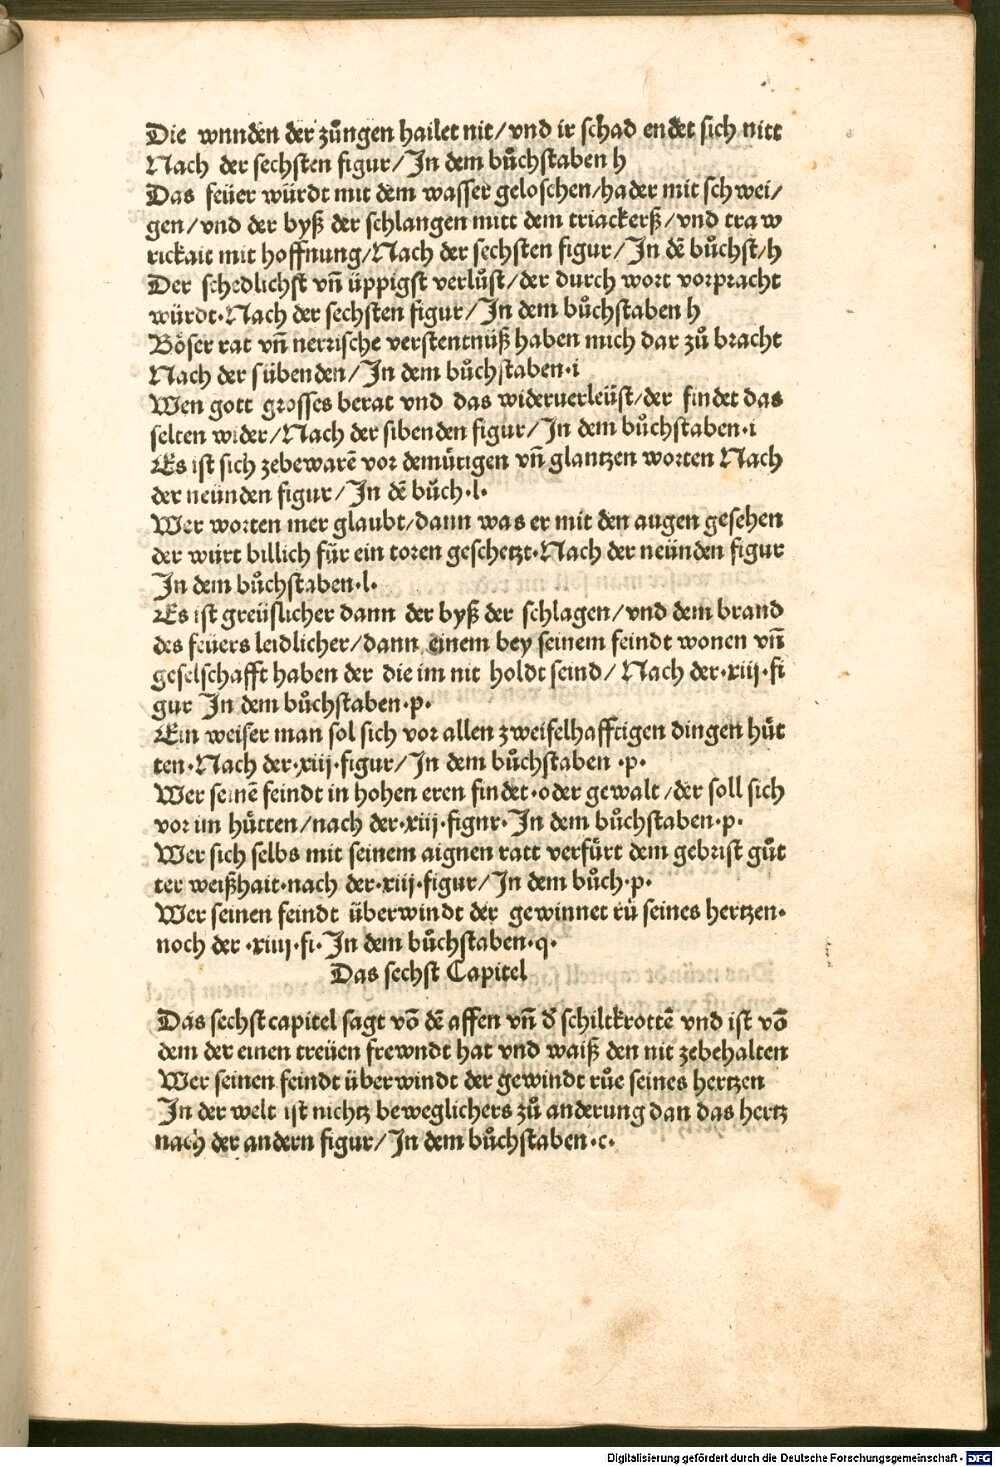 Die wnnden der zu̇ngen hailet nit/vnd ir schad endet sich nitt
Nach der sechsten figur/In dem bůchstaben h
Das feüer würdt mit dem wasser geloschen/hader mit schwei/
gen/vnd der byß der schlangen mitt dem triackerß/vnd traw
rickait mit hoffnung/Nach der sechsten figur/In dē bůchst/h
Der schedlichst vn̄ üppigst verlůst/der durch wort vorpracht
würdt·Nach der sechsten figur/In dem bůchstaben h
Böser rat vn̄ nerrische verstentnüß haben mich dar zů bracht
Nach der sübenden/In dem bůchstaben·i
Wen gott grosses berat vnd das wideruerleüst/der findet das
selten wider/Nach der sibenden figur/In dem bůchstaben·i
Es ist sich zebewarē vor demütigen vn̄ glantzen worten Nach
der neünden figur/In dē bůch·l·
Wer worten mer glaubt/dann was er mit den augen gesehen
der würt billich für ein toren geschetzt·Nach der neünden figur
In dem bůchstaben·l·
Es ist greüslicher dann der byß der schlagen/vnd dem brand
des feüers leidlicher/dann einem bey seinem feindt wonen vn̄
geselschafft haben der die im nit holdt seind/ Nach der·xiij·fi
gur In dem bůchstaben·p·
Ein weiser man sol sich vor allen zweifelhafftigen dingen hüt
ten·Nach der·xiij·figur/In dem bůchstaben ·p·
Wer seinē feindt in hohen eren findet·oder gewalt/der soll sich
vor im hütten/nach der·xiij·fignr·In dem bůchstaben·p·
Wer sich selbs mit seinem aignen ratt verfürt dem gebrist gůt
ter weißhait·nach der·xiij·figur/In dem bůch·p·
Wer seinen feindt überwindt der gewinnet rü seines hertzen·
noch der ·xiiij·fi·In dem bůchstaben·q·
Das sechst Capitel
Das sechst capitel sagt vō dē affen vn̄ d̄ schiltkrottē vnd ist vō
dem der einen treüen frewndt hat vnd waiß den nit zebehalten
Wer seinen feindt überwindt der gewindt růe seines hertzen
In der welt ist nichtz beweglichers zů anderung dan das hertz
nach der andern figur/In dem bůchstaben·c·
Digitalisierung gefördert durch die Deutsche Forschungsgemeinschaft - DFG